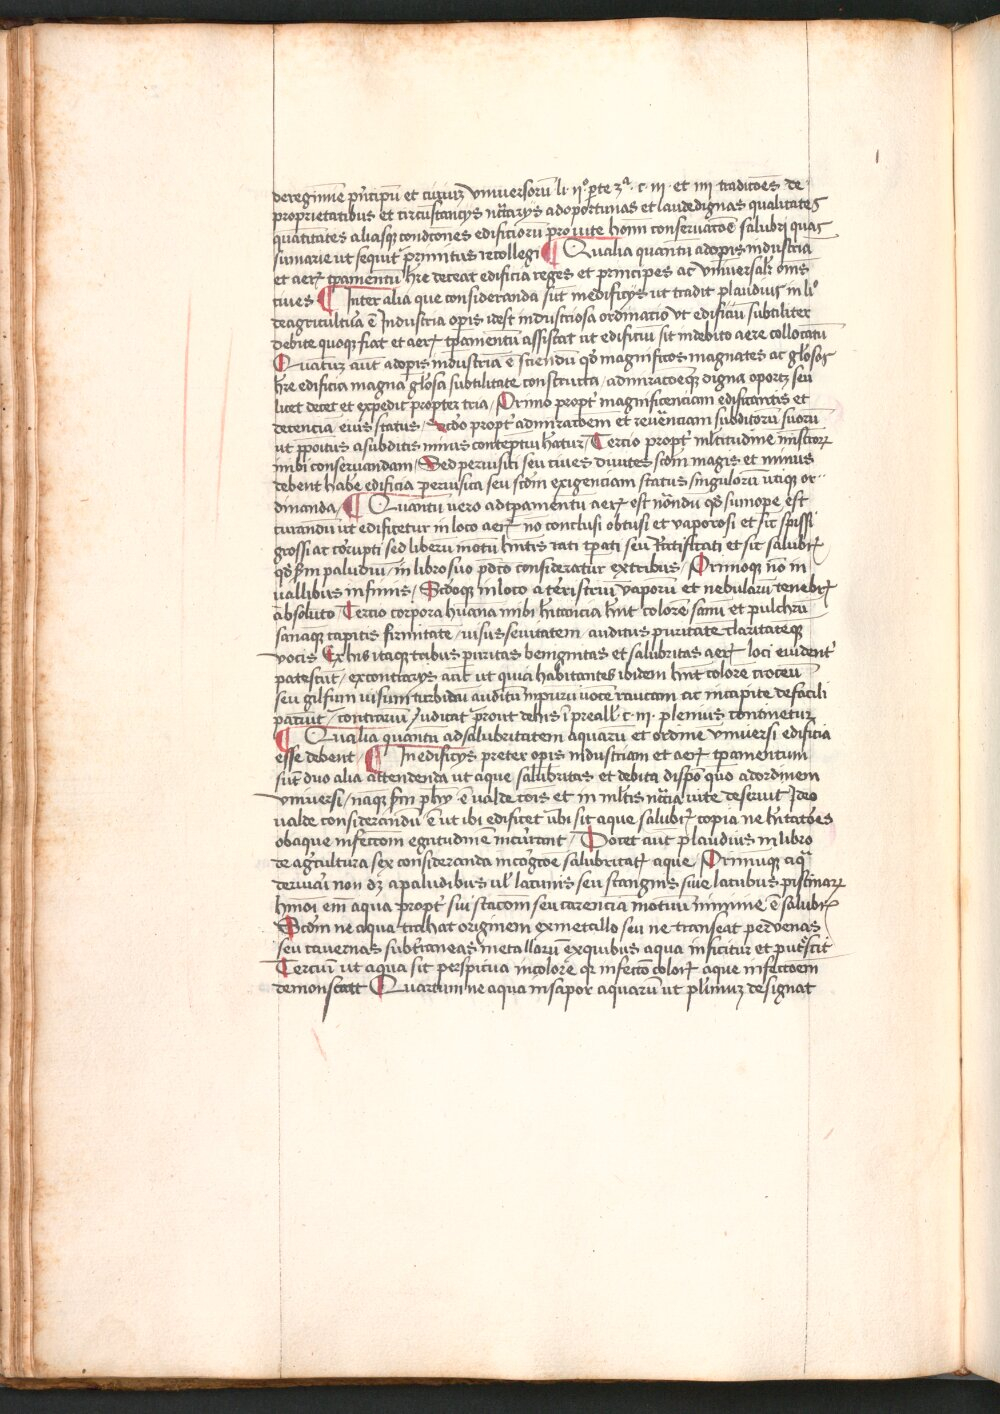 de regimīe pⁿcipū et ciuiū vniuersorū li· ii° p̄te 3ᵃ· c· iii· et iiii· tradicōes de
proprietatibus et circūstancijs nc̄carijs ad oportunas et laudedignas qualitates
quātitates aliasqꝫ condicōnes edificiorū pro vite hoīm conseruacōe salubri quas
sūmarie ut sequit̄ prīmitus recollegi ¶ Qualia quantū ad opis industriā
et aerꝭ tp̄amentū hr̄e deceat edificia reges et principes ac vniuersalr̄ om̄s
ciues ¶ Inter alia que consideranda sūt in edificijs ut tradit plaudius in li°
de agricultura ē Industria opis idest industriosa ordinacio vt edificiū subtiliter
debite quoqꝫ fiat et aerꝭ tp̄amentū assistat ut edificiū sit in debito aere collocatū
Quātuꝫ aut̄ ad opis industriā ē sciendū qd̄ magnificos magnates ac gl̄osos
hr̄e edificia magna gl̄osa subtilitate constructa / admiracōeqꝫ digna oportꝫ seu
licet decet et expedit propter tria / Primo propt̄ magnificenciam edificantis et
decencia eius status / Secdo propt̄ admiracōem et reuēnciam subditorū suorū
ut p̄positus a subditis minus conteptui h̄atur / Tercio propt̄ ml̄titudinē mīstrorꝫ
inibi conseruandam / Sed perusiti seu ciues diuites scd̄m magis et minus
debent habē edificia perusita seu scd̄m exigenciam status singulorū vtiqꝫ or-
dinanda / ¶ Quantū vero ad tp̄amentū aerꝭ est nōndū qd̄ sumope est
curandū ut edificetur in loco aerꝭ nō conclusi obtusi et vaporosi et sic spissi
grossi ac corrupti sed liberū motū hn̄tis rari tp̄ati seu rectificati et sic salubrꝭ
qd̄ fm̄ paludiū / in libro suo pd̄to consideratur ex tribus / Primoqꝫ nō in
vallibus infimis / Scd̄oqꝫ in loco a teristriū vaporū et nebularū tenebrꝭ
absoluto / Tercio corpora hūana inibi hītancia hn̄t colorē sanū et pulchrū
sanaqꝫ capitis firmitate / visus seuitatem auditus puritate claritateqꝫ
vocis Ex his itaqꝫ tribus puritas benignitas et salubritas aerꝭ loci euident̄
patescūt / ex contrarijs aut̄ ut quia habitantes ibidem hn̄t colorē croceū
seu gilfum visum turbidū auditū īmpurū vocē raucam ac in capite de facili
paciūt / contrariū iudicat̄ prout de his ī preall· c· iii· plenius continetur
¶ Qualia quantū ad salubritatem aquarū et ordinē vniuersi edificia
esse debent ¶ In edificijs preter opis industriam et aerꝭ tp̄amentum
sūt duo alia attendenda ut aque salubritas et debita dispō quo ad ordinem
vniuersi / naqꝫ fm̄ phy· ē valde cōis et in ml̄tis nc̄cia vite deseruit Ideo
valde considerandū ē ut ibi edificet̄ vbi sit aque salubrꝭ copia ne hītatōes
ob aque infectōm egritudinē incurrant / Docet aut̄ plaudius in libro
de agr̄cultura sex consideranda in coḡcōe salubritatꝭ aque / Primūqꝫ aq̄
deriuari non dꝫ a paludibus vl̄ lacunis seu stangnis siue lacubus piscinarꝫ
hīmoi em̄ aqua propt̄ sui stacōm seu carencia motiuū nīmime ē salubrꝭ
Scd̄m ne aqua trahat originem ex metallo seu ne transeat per venas
seu cauernas subt̄raneas metallorū ex quibus aqua inficitur et putrescit
Tercium ut aqua sit perspicua in colore qr̄ infectō colorꝭ aque infectōem
demonstrat Quartum ne aqua insapor aquarū ut plimuꝫ designat